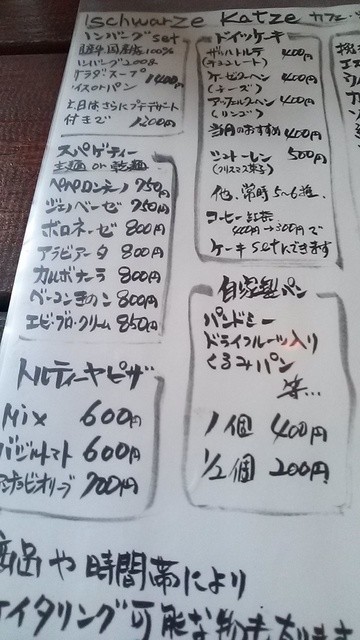 schwarze Katze カフェ
ハンバーグ set
国産 100%
ハンバーグ 200g
サラダ スープ
ライス or パン 1400円
土日はさらにプチデザート
付きで 1200円
スパゲティー
生麺 or 乾麺
ペペロンチーノ 750円
ジェノベーゼ 750円
ボロネーゼ 800円
アラビアータ 800円
カルボナーラ 800円
ベーコンきのこ 800円
エビ・ブロ・クリーム 850円
トルティーヤピザ
Mix 600円
バジルトマト 600円
アンチョビオリーブ 700円
ドイツケーキ
ザッハトルテ 400円
(チョコレート)
ケーゼクーヘン 400円
(チーズ)
アップルクーヘン 400円
(リンゴ)
当月のおすすめ 400円
シュトーレン 500円
(クリスマス菓子)
他、常時5〜6種
コーヒー 紅茶
400円→300円で
ケーキ setにできます
自家製パン
パンドミー
ドライフルーツ入り
くるみパン
等...
1個 400円
1/2個 200円
商品や時間帯により
ケイタリング可能な物もあります